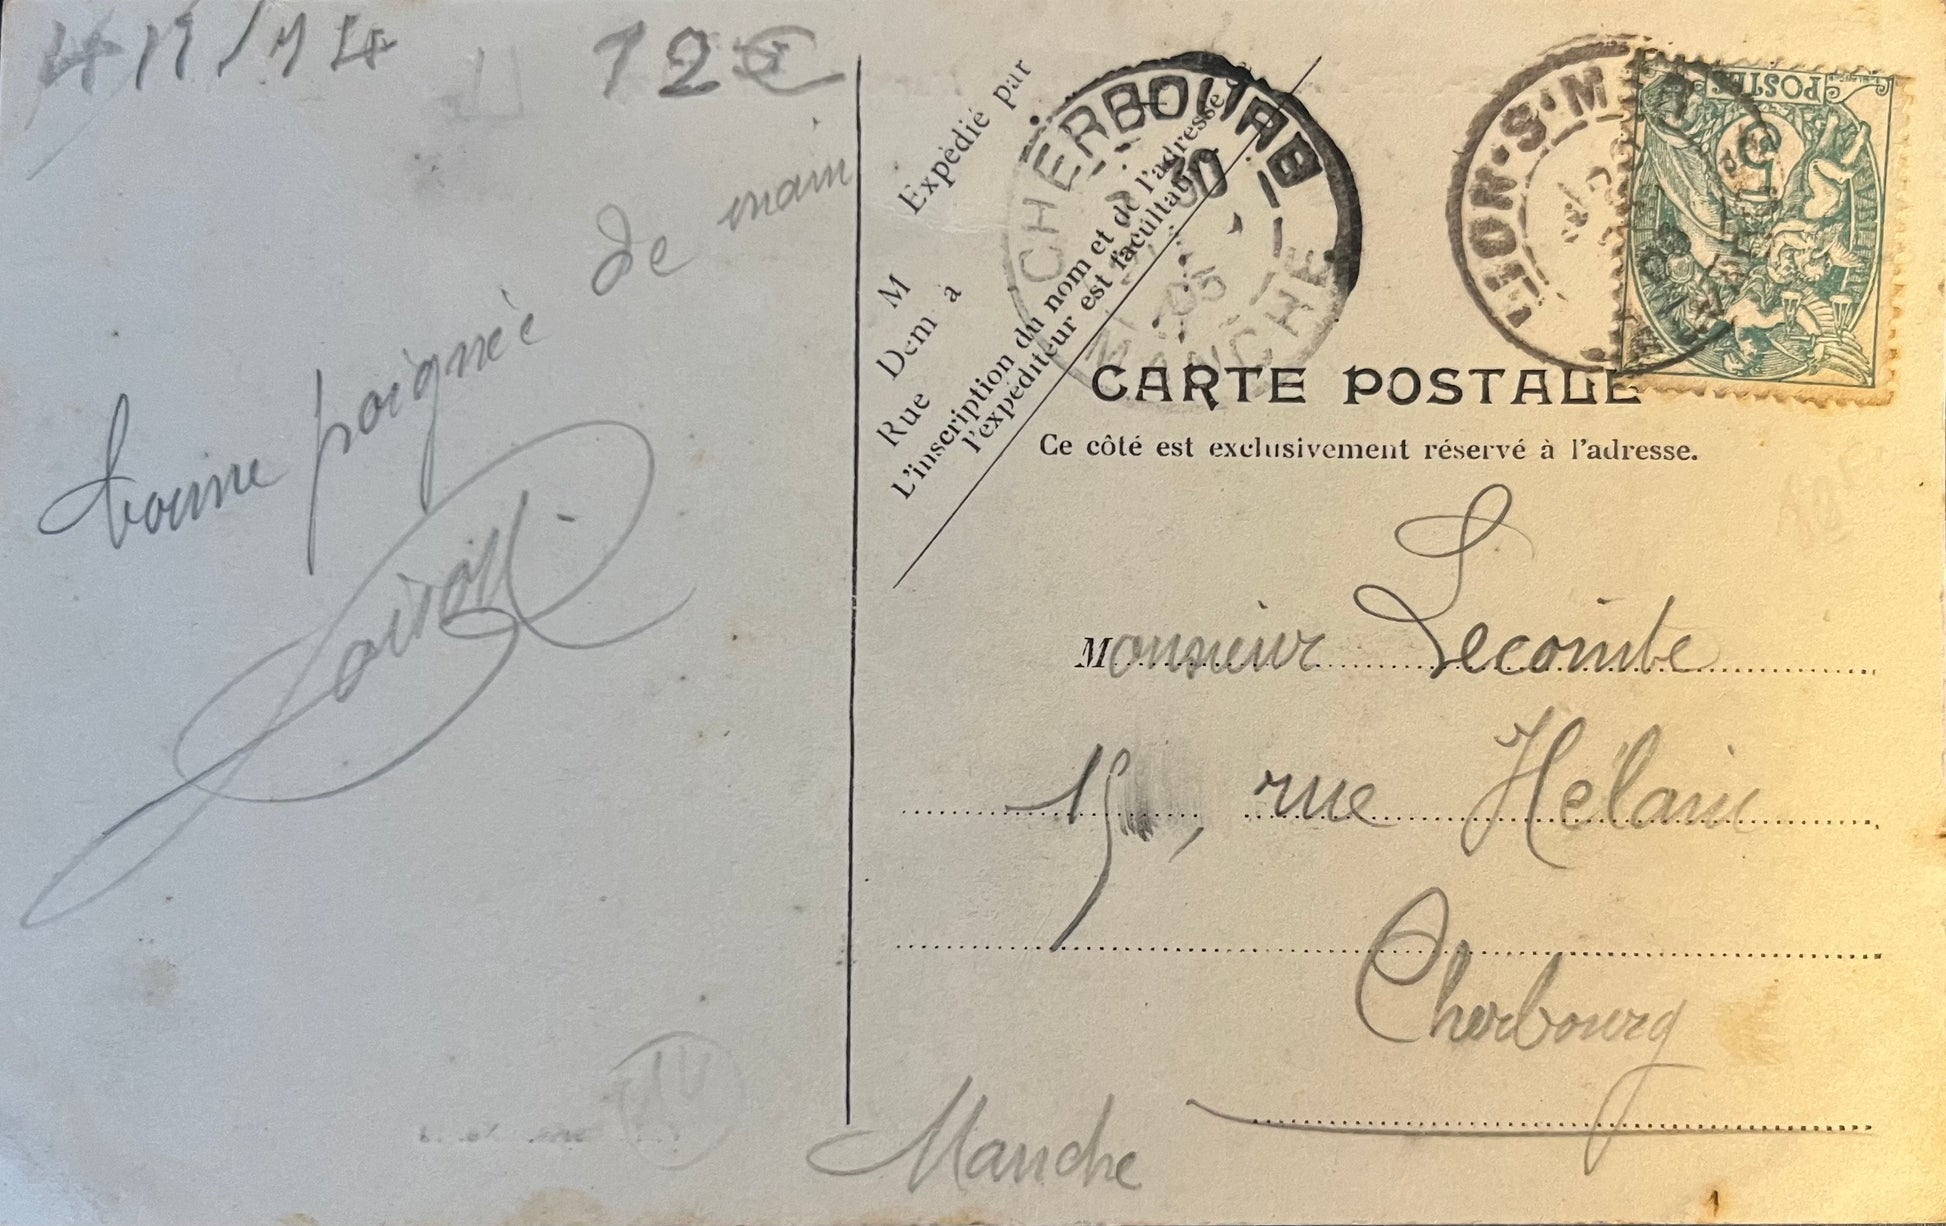 12€
bonne poignée de main
Expédié par
M
Dem à
Rue
L'inscription du nom et de l'adresse de
l'expéditeur est facultative.
CHERBOURG
3 30
05
MANCHE
POSTES
5
CARTE POSTALE
Ce côté est exclusivement réservé à l'adresse.
Monsieur Lecomte
15, rue Hélain
Cherbourg
Manche